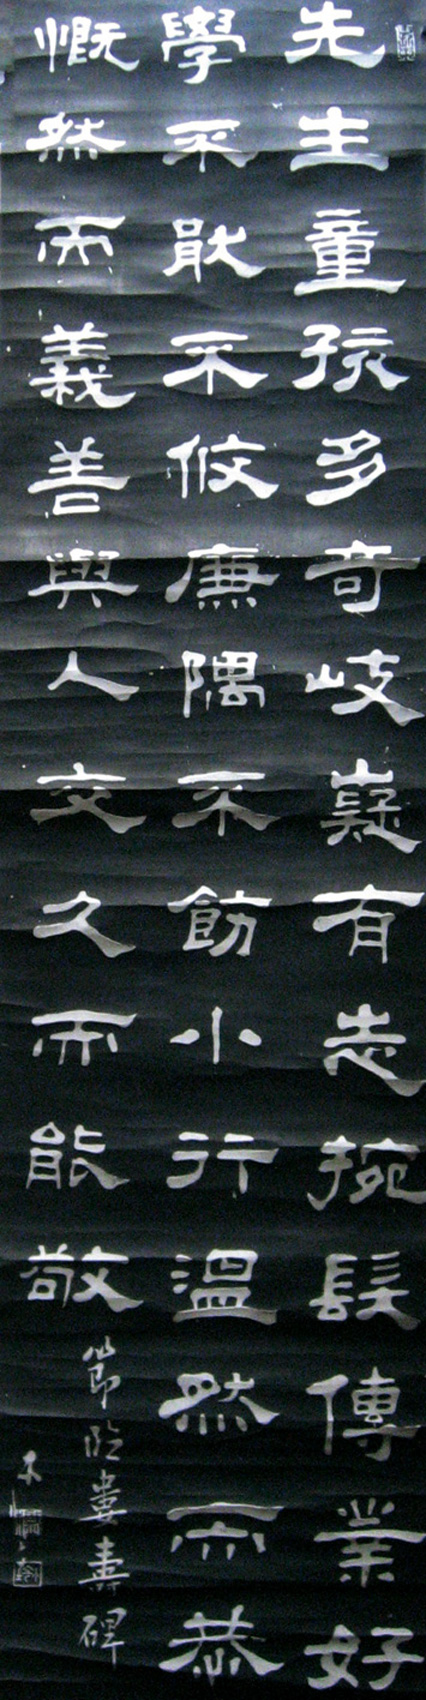 先生童孩多奇岐嶷有志捥髮傳業好
學不猒不攸廉隅不飭小行溫然而恭
慨然而義善與人交久而能敬
節臨婁壽碑